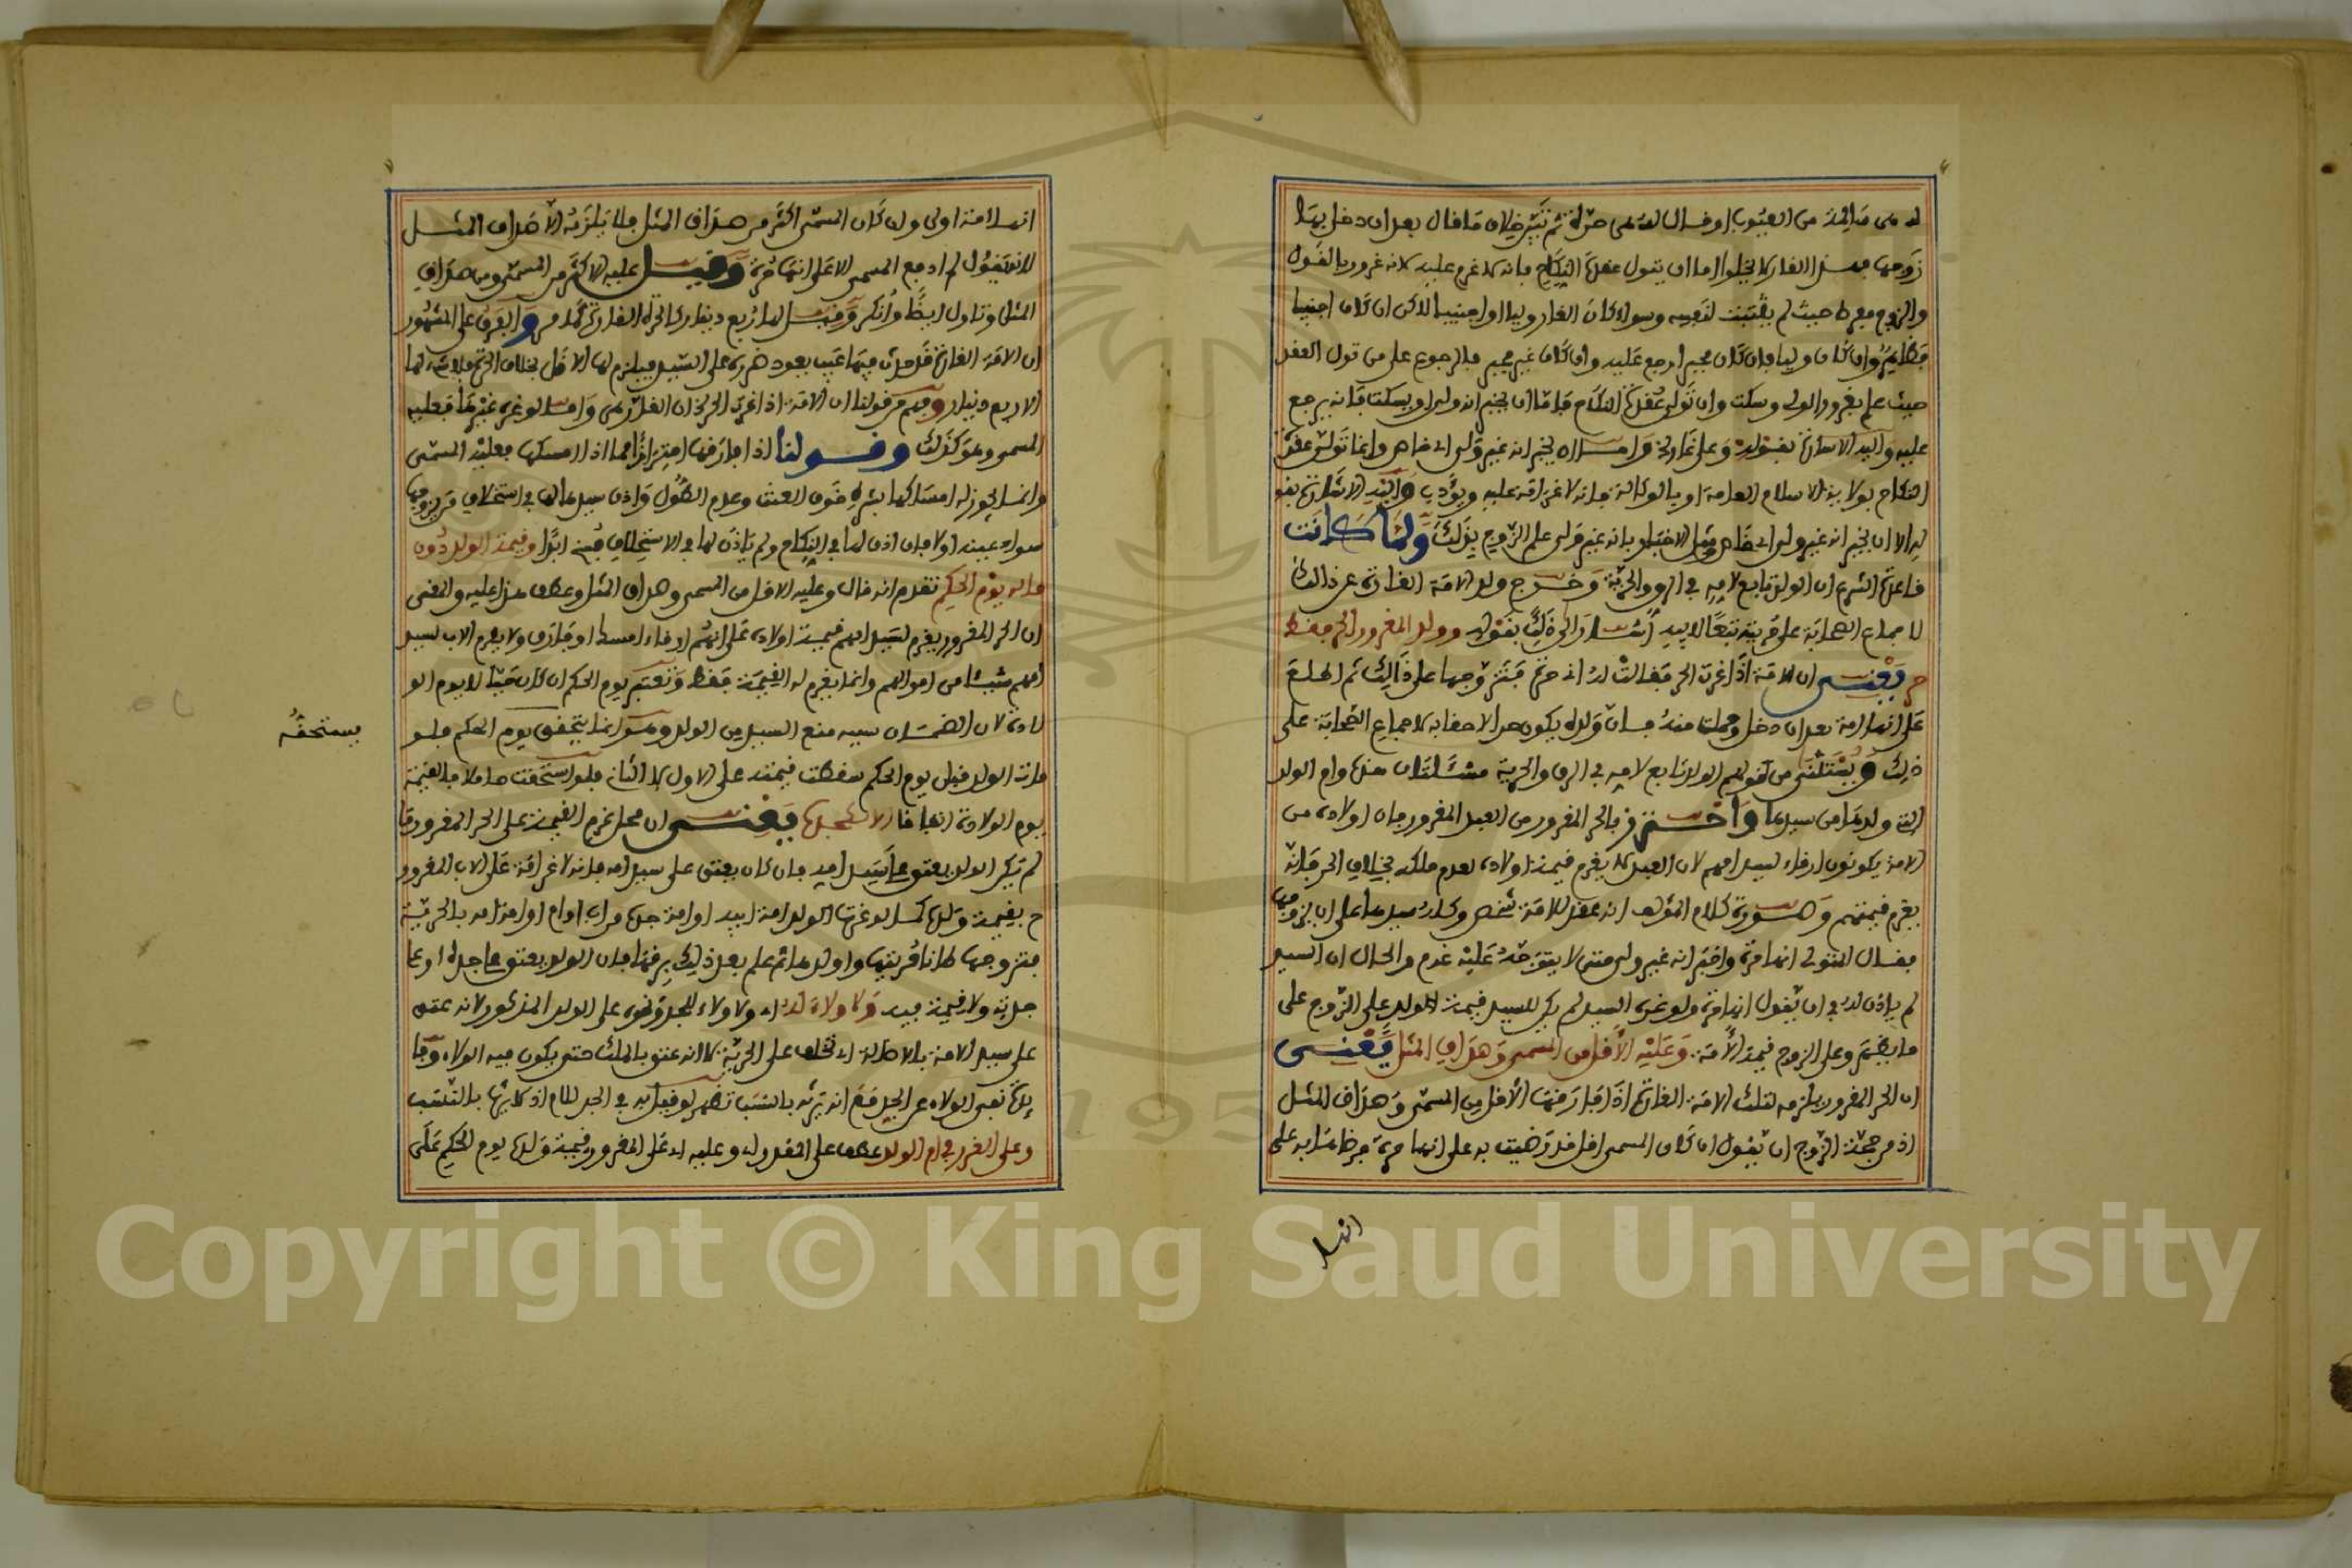 له هي سالمة من العيوب او قال له هي حرة ثم تبين خلاف ما قال بعد ان دخل بها
زوجها فـ الغار لا يخلوا اما ان يتولى عقدة النكاح فانه لا غرم عليه لانه غرور بالقول
والزوج مفرط حيث لم يتثبت لنفسه وسواء كان الغار وليا او اجنبيا لاكن ان كان اجنبيا
فظاهر وان كان وليا فان كان مجبرا رجع عليه وان كان غير مجبر فلا رجوع على من تولى العقد
حيث علم بغرور الولي وسكت وان تولى عقدة النكاح فاما ان يخبر انه ولي او يسكت فانه يرجع
عليه واليه الاشارة بقوله وعلى غار غير ولي واما ان يخبر انه غير ولي اي خاص وانما تولى عقد
النكاح بولاية الاسلام العامة او بالوكالة فانه لا غرامة عليه ويؤدب واليه الاشارة بقو
له الا ان يخبر انه غير ولي اي خاص ومثل الاخبار بانه غير ولي علم الزوج بذلك ولما كانت
قاعدة الشرع ان الولد تابع لامه في الرق والحرية وخرج ولد الامة الغارة عن ذالك
لاجماع الصحابة على حريته تبعا لابيه اشار الى ذلك بقوله وولد المغرور الحر فقط
حر يعني ان الامة اذا غرت الحر فقالت له اني حرة فتزوجها على ذالك ثم اطلع
على انها امة بعد ان دخل وحملت منه فان ولده يكون حرا لاحقا به لاجماع الصحابة على
ذلك ويستثنى من قولهم الولد تابع لامه في الرق والحرية مسئلتان هذه وام الولد
التي ولدها من سيدها واحترز بالحر المغرور من العبد المغرور فان اولاده من
الامة يكونون ارقاء لسيد امهم لان العبد لا يغرم قيمة اولاده لعدم ملكه بخلاف الحر فانه
يغرم قيمتهم وصورة كلام المؤلف انه عقد للامة شخص وكله سيدها على ان يزوجها
فقال المتولي انها حرة واخبر انه غير ولي حتى لا يتوجه عليه غرم والحال ان السيد
لم ياذن له في ان يقول انها حرة ولو غره السيد لم يكن للسيد قيمة الولد على الزوج على
ما يظهر وعلى الزوج قيمة الأمة وعليه الأقل من المسمى وصداق المثل يعني
ان الحر المغرور يلزمه لتلك الامة الغارة اذا فارقها الأقل من المسمى وصداق المثل
اذ من حجة الزوج ان يقول ان كان المسمى اقل قد رضيت به على انها حرة فرضاها به على
انها
انها امة اولى وان كان المسمى اكثر من صداق المثل فلا يلزمه الا صداق المثل
لانه يقول لم ادفع المسمى الا على انها حرة وقيل عليه الاكثر من المسمى ومن صداق
المثل وتاول ايضا وانكر وقيل لها ربع دينار كالحرة الغارة كما مر والفرق على المشهور
ان الامة الغارة قد حدث فيها عيب يعود ضرره على السيد فيلزم لها الاقل بخلاف الحرة فلا شيء لها
الا ربع دينار وفهم من قولنا ان الامة اذا غرت الحر الخ ان الغار هي واما لو غره غيرها فعليه
المسمى وهو كذلك وقولنا اذا فارقها احترازا مما اذا امسكها فعليه المسمى
وانما يجوز له امساكها بشرط خوف العنت وعدم الطول واذن سيدها لها في استخلاف من يزوجها
سواء عينه اولا فان اذن لها في النكاح ولم ياذن لها في الاستخلاف فسخ ابدا وقيمة الولد دون
ماله يوم الحكم تقدم انه قال وعليه الاقل من المسمى وصداق المثل وعطف هذا عليه والمعنى
ان الحر المغرور يغرم لسيد امهم قيمة اولاده على انهم ارقاء امسك او فارق ولا يغرم الاب لسيد
امهم شيئا من اموالهم وانما يغرم له القيمة فقط وتعتبر يوم الحكم ان كان حيا لا يوم الو
لادة لان الضمان سببه منع السيد من الولد وهو انما يتحقق يوم الحكم فلو
يستحقه
مات الولد قبل يوم الحكم سقطت قيمته على الاول لا الثاني فلو استحقت حاملا فالقيمة
يوم الولادة اتفاقا الا لكجده يعني ان محل غرم القيمة على الحر المغرور ما
لم يكن الولد يعتق على سيد امه فان كان يعتق على سيد امه فانه لا غرامة على الاب المغرور
ح بقيمة ولده كما لو غرت الولد امة ابيه او امة جده من اب او ام او امة امه بالحرية
فتزوجها ظانا حريتها واولدها ثم علم بعد ذلك برقها فان الولد يعتق على جده او على
جدته ولا قيمة فيه ولا ولاء له اي ولا ولاء للجد ونحوه على الولد المذكور لانه عتق
على سيد الامة بالاصالة اي تخلق على الحرية لا انه عتق بالملك حتى يكون فيه الولاء وفا
ئدة نفي الولاء عن الجد مع انه يرثه بالنسب تظهر لو قيل به في الجد للام اذ لا يرثه بالنسب
وعلى الغرر في ام الولد عطف على المقدر اي وعليه اي على المغرور قيمة ولده يوم الحكم على
Copyright © King Saud University